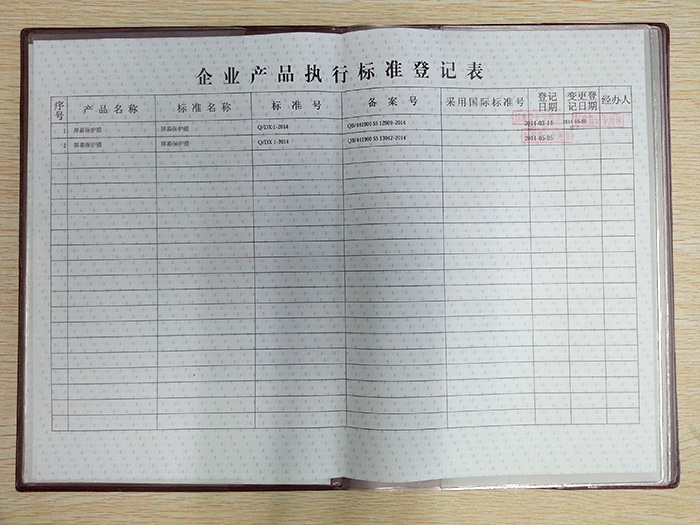 企业产品执行标准登记表
序号 产品名称 标准名称 标准号 备案号 采用国际标准号 登记日期 变更登记日期 经办人
1 屏幕保护膜 屏幕保护膜 Q/DX 1-2014 QB/441900 55 12909-2014 2014-03-14 2014-05-05
2 屏幕保护膜 屏幕保护膜 Q/DX 1-2014 QB/441900 55 13042-2014 2014-05-05